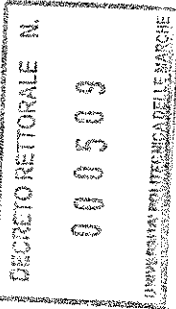 DECRETO RETTORALE N.
000509
UNIVERSITA' POLITECNICA DELLE MARCHE